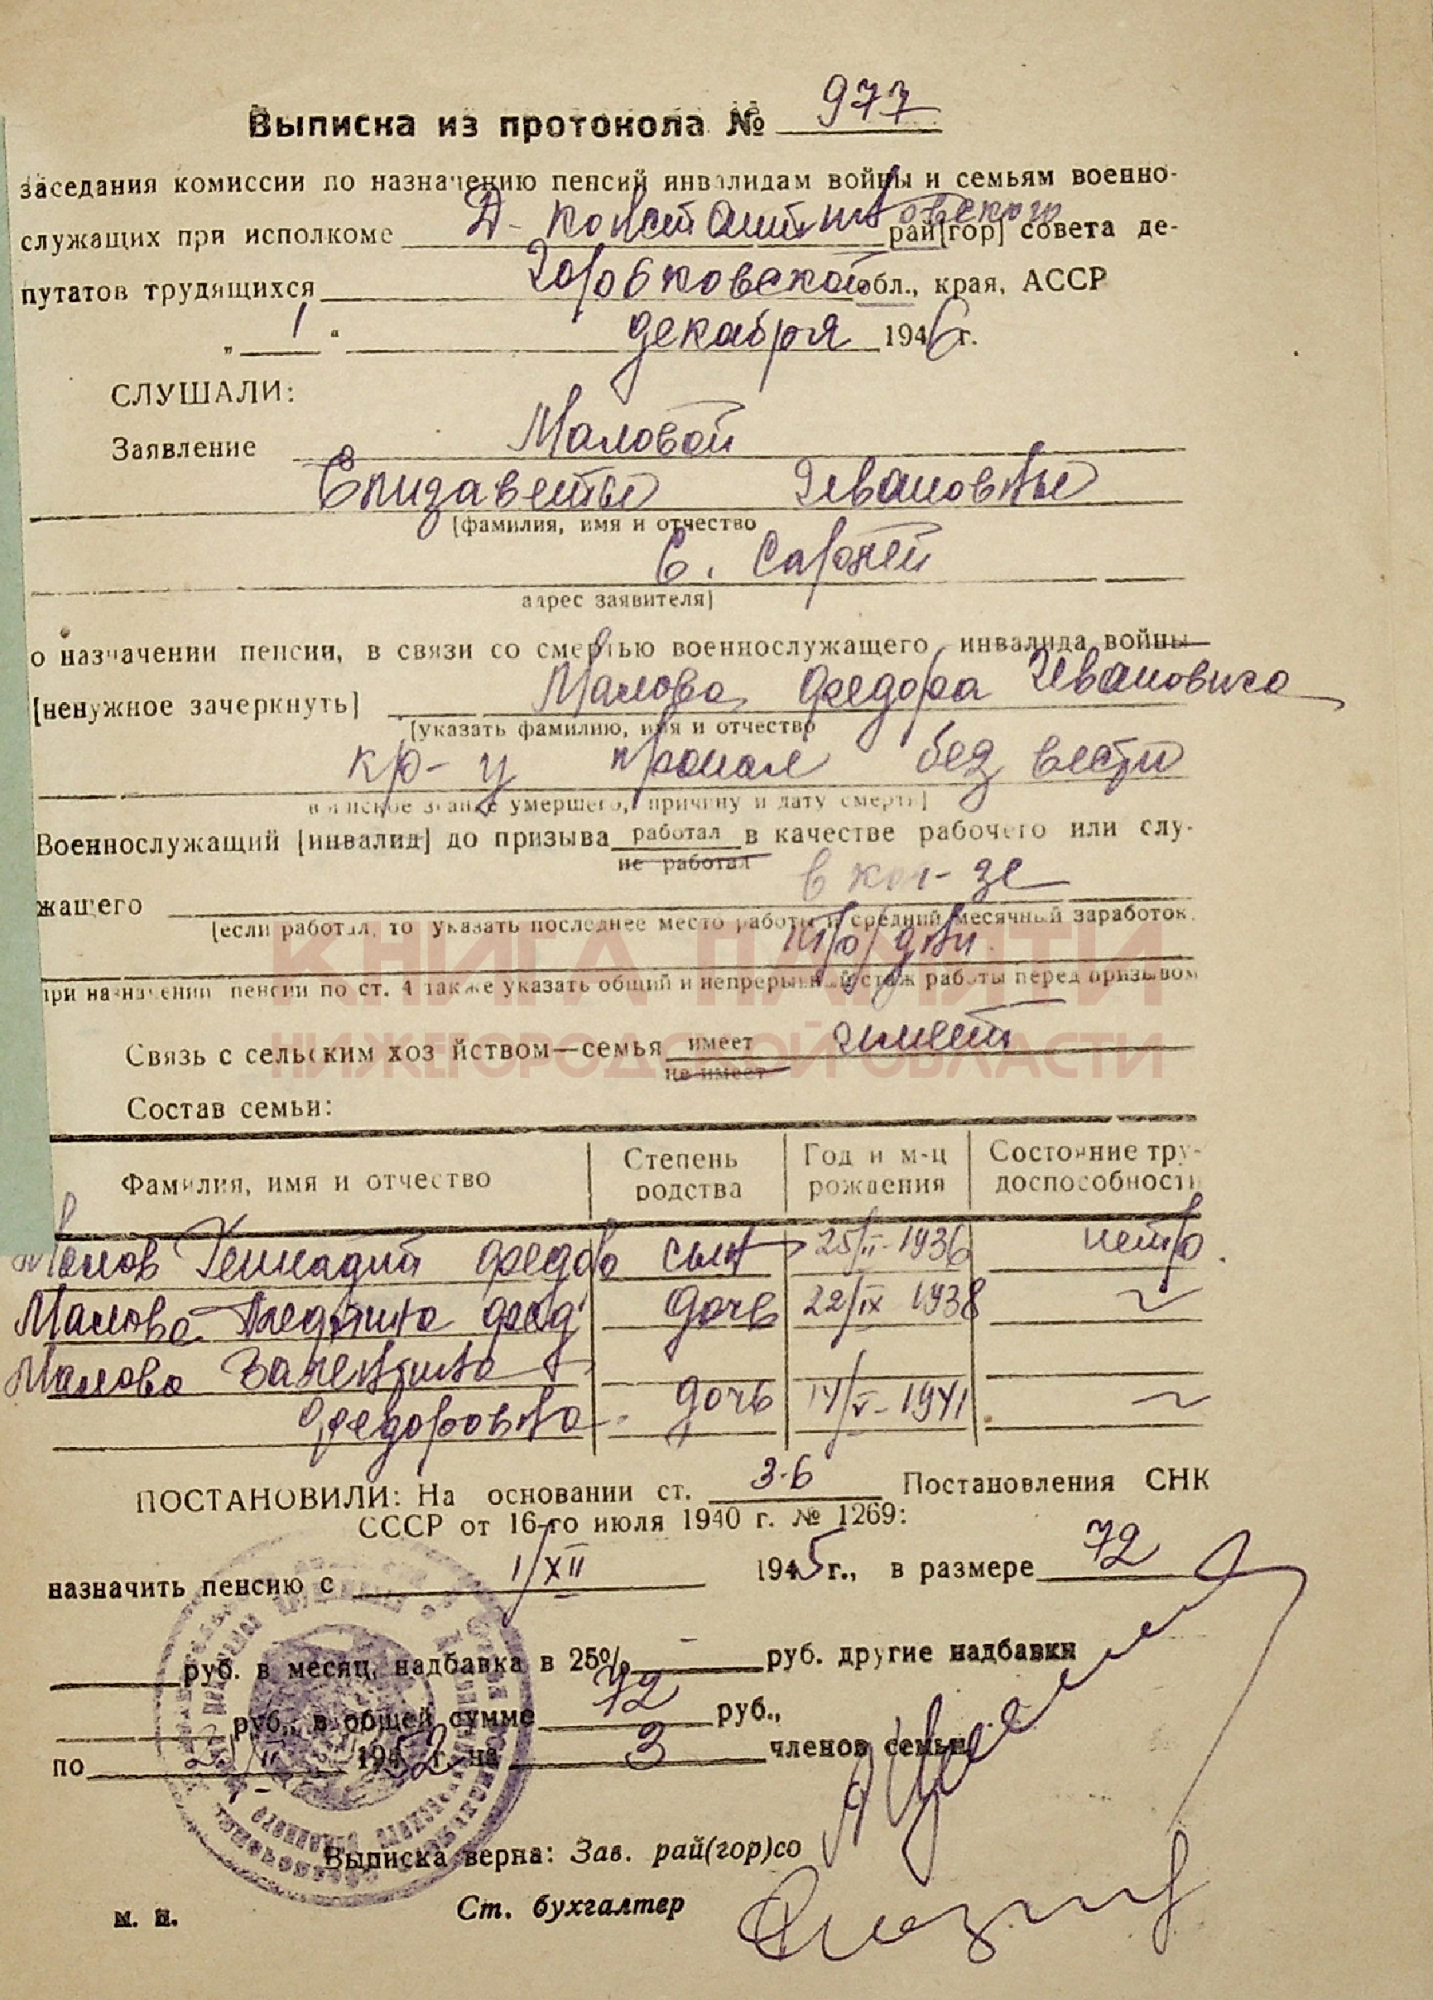 Выписка из протокола № 977
заседания комиссии по назначению пенсий инвалидам войны и семьям военно-
служащих при исполкоме Д-Константиновского рай[гор] совета де-
путатов трудящихся Горьковской обл., края, АССР
„ 1 “ декабря 1946 г.
СЛУШАЛИ:
Заявление Маловой
Елизаветы Ивановны
[фамилия, имя и отчество
С. Сарлей
адрес заявителя]
о назначении пенсии, в связи со смертью военнослужащего инвалида войны
[ненужное зачеркнуть] Малова Федора Ивановича
[указать фамилию, имя и отчество
кр-ц пропал без вести
воинское звание умершего, причину и дату смерти]
Военнослужащий [инвалид] до призыва работал в качестве рабочего или слу-
не работал
жащего в кол-зе
[если работал, то указать последнее место работы и средний месячный заработок.
тр/дни
при назначении пенсии по ст. 4 также указать общий и непрерывный стаж работы перед призывом
КНИГА ПАМЯТИ
НИЖЕГОРОДСКОЙ ОБЛАСТИ
Связь с сельским хозяйством—семья имеет имеет
не имеет
Состав семьи:
Фамилия, имя и отчество Степень родства Год и м-ц рождения Состояние тру-доспособности
Малов Геннадий Федор сын 25/II-1936 нетр.
Малова Фед дочь 22/IX 1938 ~
Малова Валентина
Федоровна дочь 14/V-1941 ~
ПОСТАНОВИЛИ: На основании ст. 3-б Постановления СНК
СССР от 16-го июля 1940 г. № 1269:
назначить пенсию с 1/XII 1945 г., в размере 72
руб. в месяц, надбавка в 25% - руб. другие надбавки
руб., в общей сумме 72 руб.,
по 1952 г. на 3 членов семьи
Выписка верна: Зав. рай(гор)со
Ст. бухгалтер
м. п.